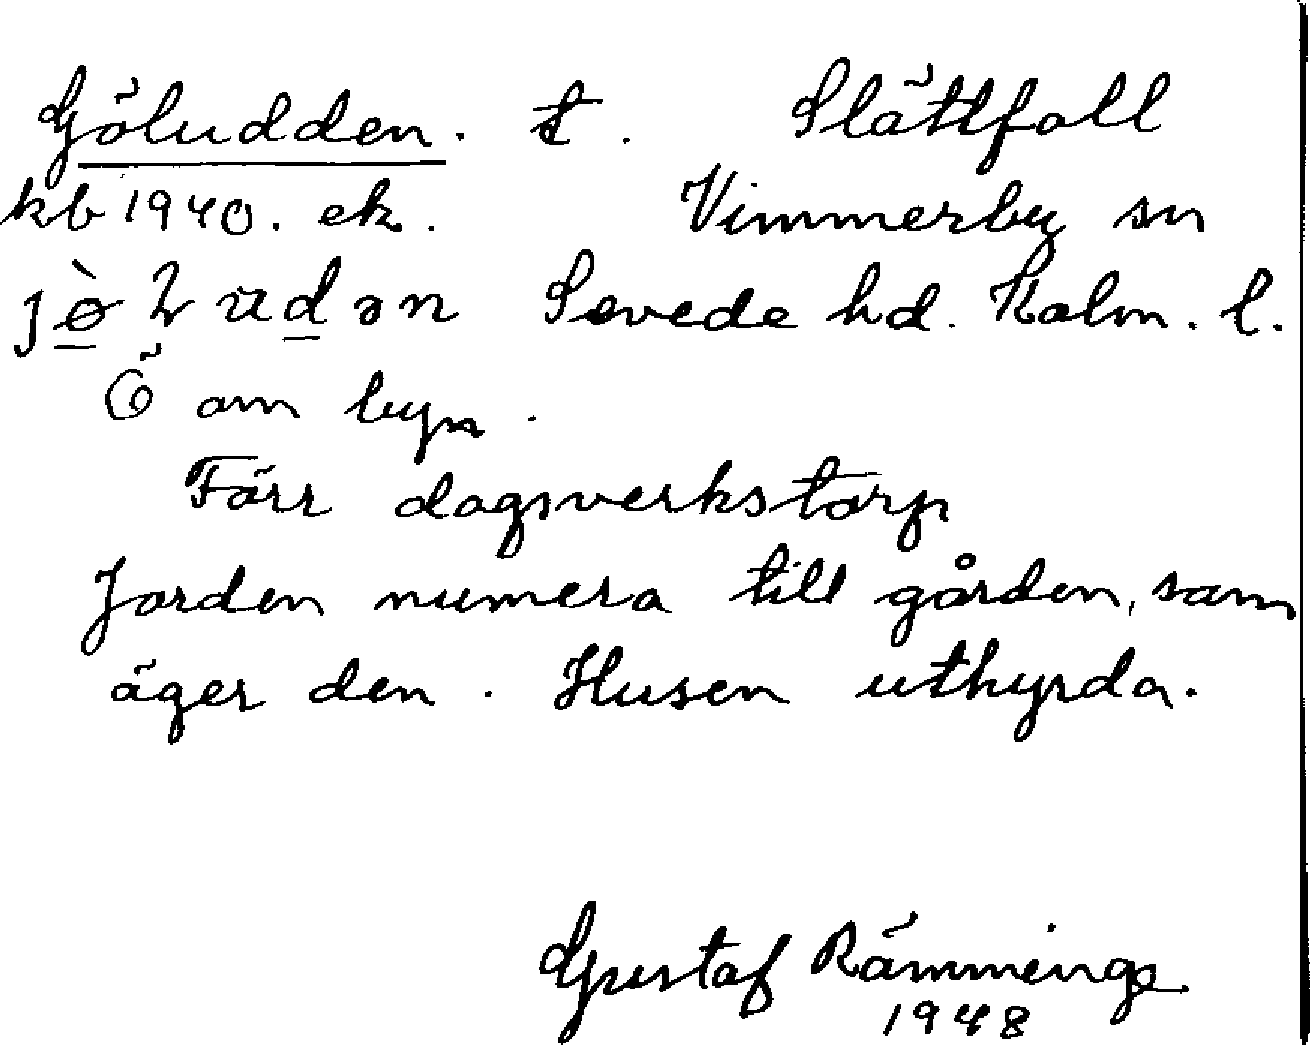 Göludden. t. Slättfall
kb 1940. ek. Vimmerby sn
jø̀ɫudən Sevede hd. Kalm. l.
Ö om byn.
Förr dagsverkstorp
Jorden numera till gården, som
äger den. Husen uthyrda.
Gustaf Rämminge
1948